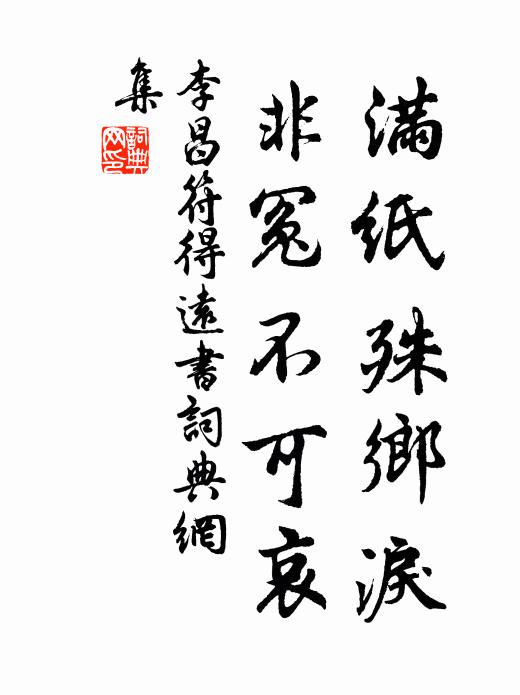 滿紙殊鄉淚
非冤不可哀
李昌符得遠書詞典網
集
詞典
网印